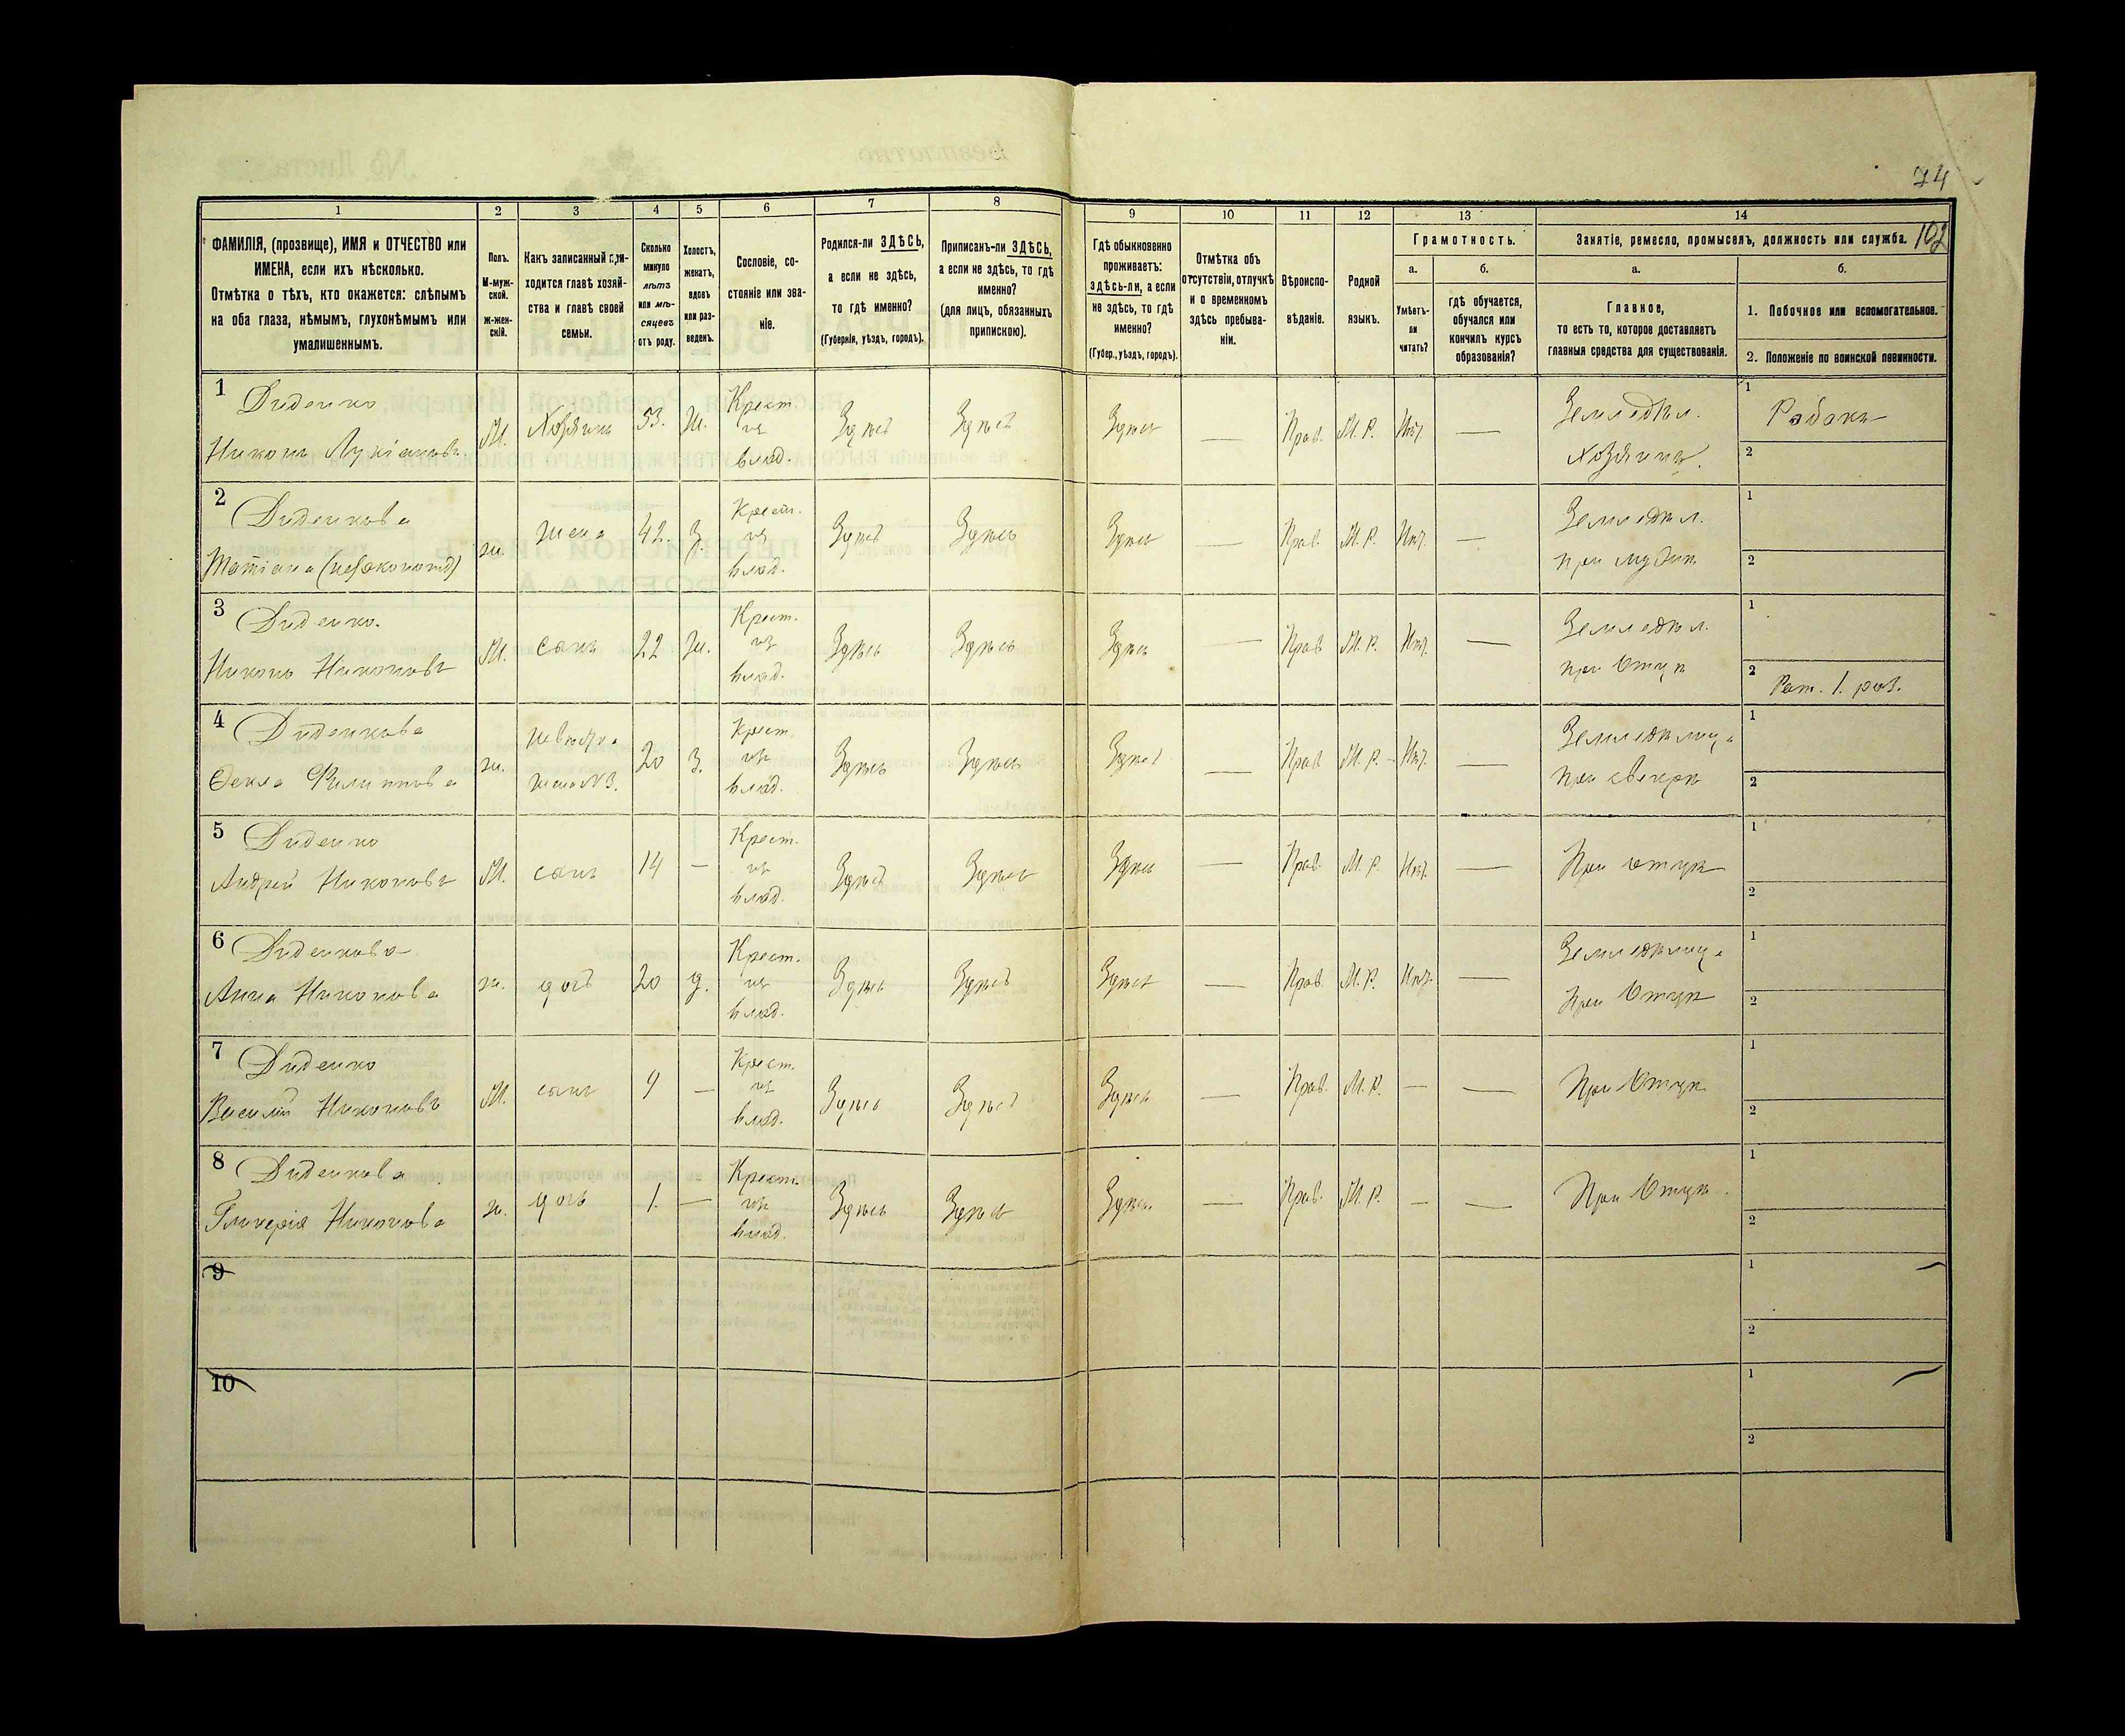 74
102
1 2 3 4 5 6 7 8 9 10 11 12 13 14
ФАМИЛІЯ, (прозвище), ИМЯ и ОТЧЕСТВО или
ИМЕНА, если ихъ нѣсколько.
Отмѣтка о тѣхъ, кто окажется: слѣпымъ
на оба глаза, нѣмымъ, глухонѣмымъ или
умалишеннымъ.
Полъ.
М-муж-
ской.
ж-жен-
скій.
Какъ записанный при-
ходится главѣ хозяй-
ства и главѣ своей
семьи.
Сколько
минуло
лѣтъ
или мѣ-
сяцевъ
отъ роду.
Холостъ,
женатъ,
вдовъ
или раз-
веденъ.
Сословіе, со-
стояніе или зва-
ніе.
Родился-ли ЗДѢСЬ,
а если не здѣсь,
то гдѣ именно?
(Губернія, уѣздъ, городъ).
Приписанъ-ли ЗДѢСЬ,
а если не здѣсь, то гдѣ
именно?
(для лицъ, обязанныхъ
припискою).
Гдѣ обыкновенно
проживаетъ:
здѣсь-ли, а если
не здѣсь, то гдѣ
именно?
(Губер., уѣздъ, городъ).
Отмѣтка объ
отсутствіи, отлучкѣ
и о временномъ
здѣсь пребыва-
ніи.
Вѣроиспо-
вѣданіе.
Родной
языкъ.
Грамотность.
а.
Умѣетъ-
ли
читать?
б.
гдѣ обучается,
обучался или
кончилъ курсъ
образованія?
Занятіе, ремесло, промыселъ, должность или служба.
а.
Главное,
то есть то, которое доставляетъ
главныя средства для существованія.
б.
1. Побочное или вспомогательное.
2. Положеніе по воинской повинности.
1 Диденко
Никонъ Лукіановъ
М. Хозяинъ 53. Ж.
Крест.
изъ
влад.
Здѣсь Здѣсь Здѣсь — Прав. М. Р. Нѣт. —
Земледѣл.
Хозяинъ.
1
2
2 Диденкова
Татіана (незаконорд)
ж. жена 42. З.
Крест.
изъ
влад.
Здѣсь Здѣсь Здѣсь — Прав. М. Р. Нѣт. —
Земледѣл.
при мужѣ
1
2
3 Диденко.
Никонъ Никоновъ
М. сынъ 22 Ж.
Крест.
изъ
влад.
Здѣсь Здѣсь Здѣсь — Прав. М. Р. Нѣт. —
Земледѣл.
при Отцѣ
1
2 Рат. 1. раз.
4 Диденкова
Ѳекла Филипова
ж.
невѣстка
жена №3.
20 З.
Крест.
изъ
влад.
Здѣсь Здѣсь Здѣсь — Прав. М. Р. Нѣт. —
Земледѣлица
при свекрѣ
1
2
5 Диденко
Андрей Никоновъ
М. сынъ 14 —
Крест.
изъ
влад.
Здѣсь Здѣсь Здѣсь — Прав. М. Р. Нѣт. —
При отцѣ
1
2
6 Диденкова
Анна Никонова
ж. дочь 20 д.
Крест.
изъ
влад.
Здѣсь Здѣсь Здѣсь — Прав. М. Р. Нѣт. —
Земледѣлица
При Отцѣ
1
2
7 Диденко
Василій Никоновъ
М. сынъ 9 —
Крест.
изъ
влад.
Здѣсь Здѣсь Здѣсь — Прав. М. Р. — —
При Отцѣ
1
2
8 Диденкова
Гликерія Никонова
ж. дочь 1. —
Крест.
изъ
влад.
Здѣсь Здѣсь Здѣсь — Прав. М. Р. — —
При Отцѣ.
1
2
9
1
2
10
1
2